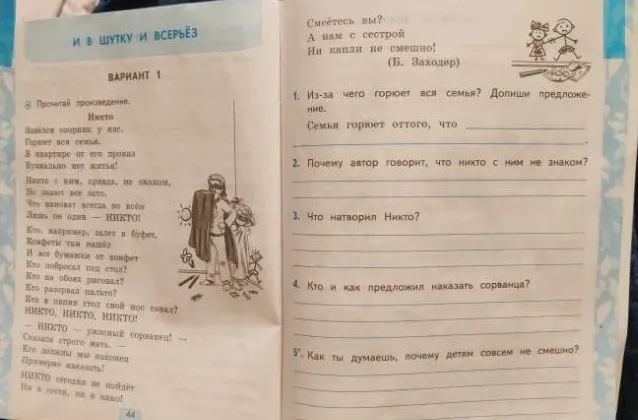 И В ШУТКУ И ВСЕРЬЁЗ
ВАРИАНТ 1
Прочитай произведение.
Никто
Завёлся озорник у нас.
Горюет вся семья.
В квартире от его проказ
Буквально нет житья!
Никто с ним, правда, не знаком,
Но знают все зато,
Что виноват всегда во всём
Лишь он один — НИКТО!
Кто, например, залез в буфет,
Конфеты там нашёл
И все бумажки от конфет
Кто побросал под стол?
Кто на обоях рисовал?
Кто разорвал пальто?
Кто в папин стол свой нос совал?
НИКТО, НИКТО, НИКТО!
— НИКТО — ужасный сорванец! —
Сказала строго мать. —
Его должны мы наконец
Примерно наказать!
НИКТО сегодня не пойдёт
Ни в гости, ни в кино!
44
Смеётесь вы?
А нам с сестрой
Ни капли не смешно!
(Б. Заходер)
1. Из-за чего горюет вся семья? Допиши предложе-
ние.
Семья горюет оттого, что
2. Почему автор говорит, что никто с ним не знаком?
3. Что натворил Никто?
4. Кто и как предложил наказать сорванца?
5*. Как ты думаешь, почему детям совсем не смешно?